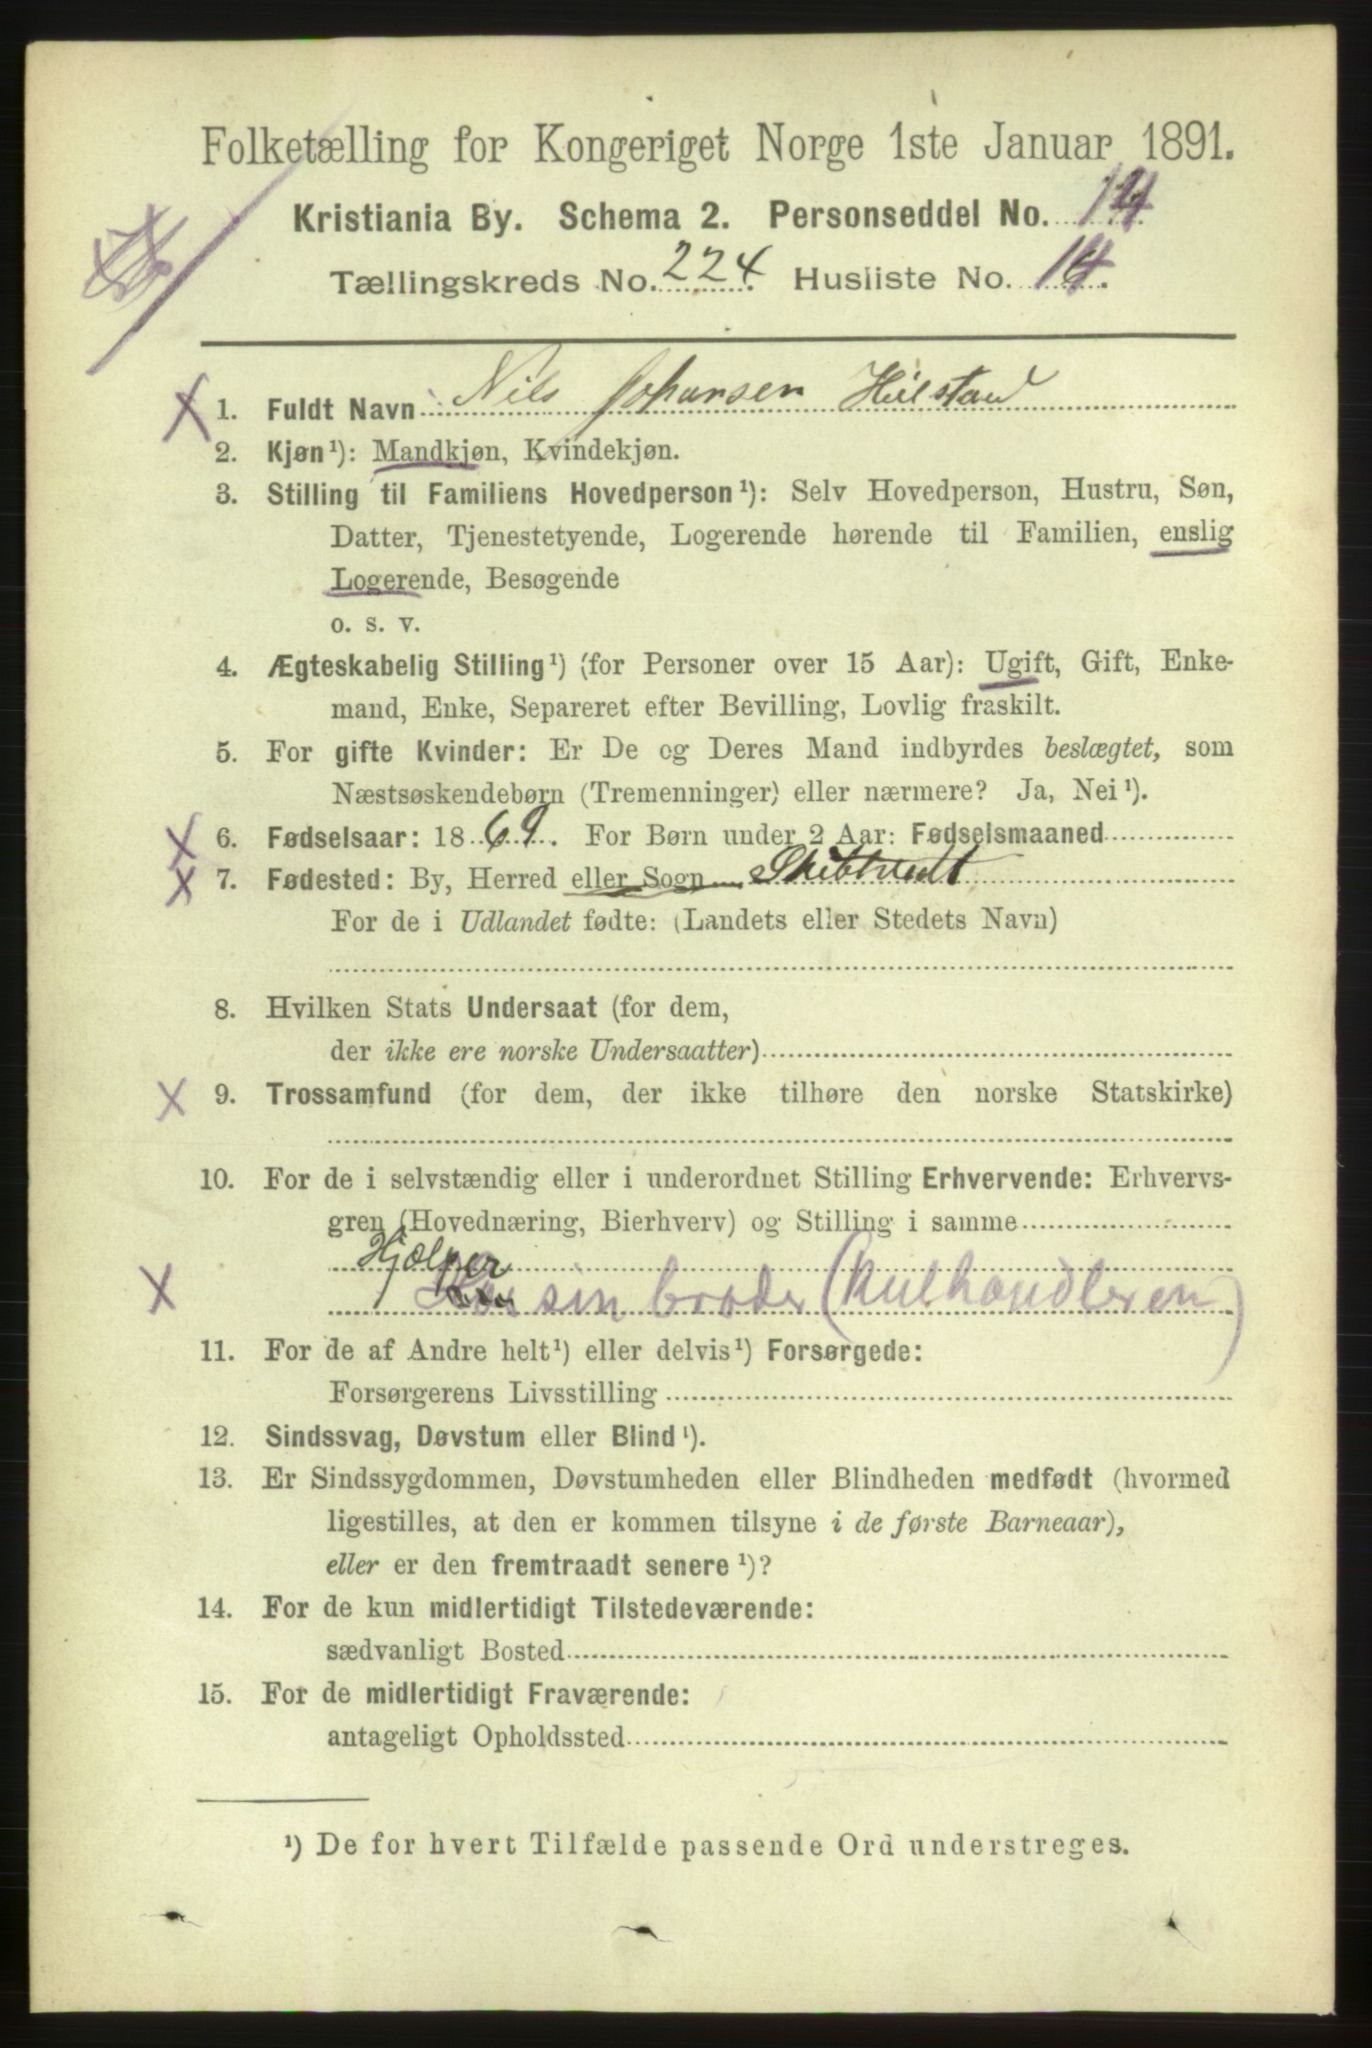 Folketælling for Kongeriget Norge 1ste Januar 1891.
Kristiania By. Schema 2. Personseddel No. 14
Tællingskreds No. 224. Husliste No. 14.
1. Fuldt Navn Nils Johansen Hülstad
2. Kjøn¹): Mandkjøn, Kvindekjøn.
3. Stilling til Familiens Hovedperson¹): Selv Hovedperson, Hustru, Søn,
Datter, Tjenestetyende, Logerende hørende til Familien, enslig
Logerende, Besøgende
o. s. v.
4. Ægteskabelig Stilling¹) (for Personer over 15 Aar): Ugift, Gift, Enke-
mand, Enke, Separeret efter Bevilling, Lovlig fraskilt.
5. For gifte Kvinder: Er De og Deres Mand indbyrdes beslægtet, som
Næstsøskendebørn (Tremenninger) eller nærmere? Ja, Nei¹).
6. Fødselsaar: 1869. For Børn under 2 Aar: Fødselsmaaned
7. Fødested: By, Herred eller Sogn Skibtvedt
For de i Udlandet fødte: (Landets eller Stedets Navn)
8. Hvilken Stats Undersaat (for dem,
der ikke ere norske Undersaatter)
9. Trossamfund (for dem, der ikke tilhøre den norske Statskirke)
10. For de i selvstændig eller i underordnet Stilling Erhvervende: Erhvervs-
gren (Hovednæring, Bierhverv) og Stilling i samme
Hjælper
sin broder (kulhandleren)
11. For de af Andre helt¹) eller delvis¹) Forsørgede:
Forsørgerens Livsstilling
12. Sindssvag, Døvstum eller Blind¹).
13. Er Sindssygdommen, Døvstumheden eller Blindheden medfødt (hvormed
ligestilles, at den er kommen tilsyne i de første Barneaar),
eller er den fremtraadt senere¹)?
14. For de kun midlertidigt Tilstedeværende:
sædvanligt Bosted
15. For de midlertidigt Fraværende:
antageligt Opholdssted
¹) De for hvert Tilfælde passende Ord understreges.